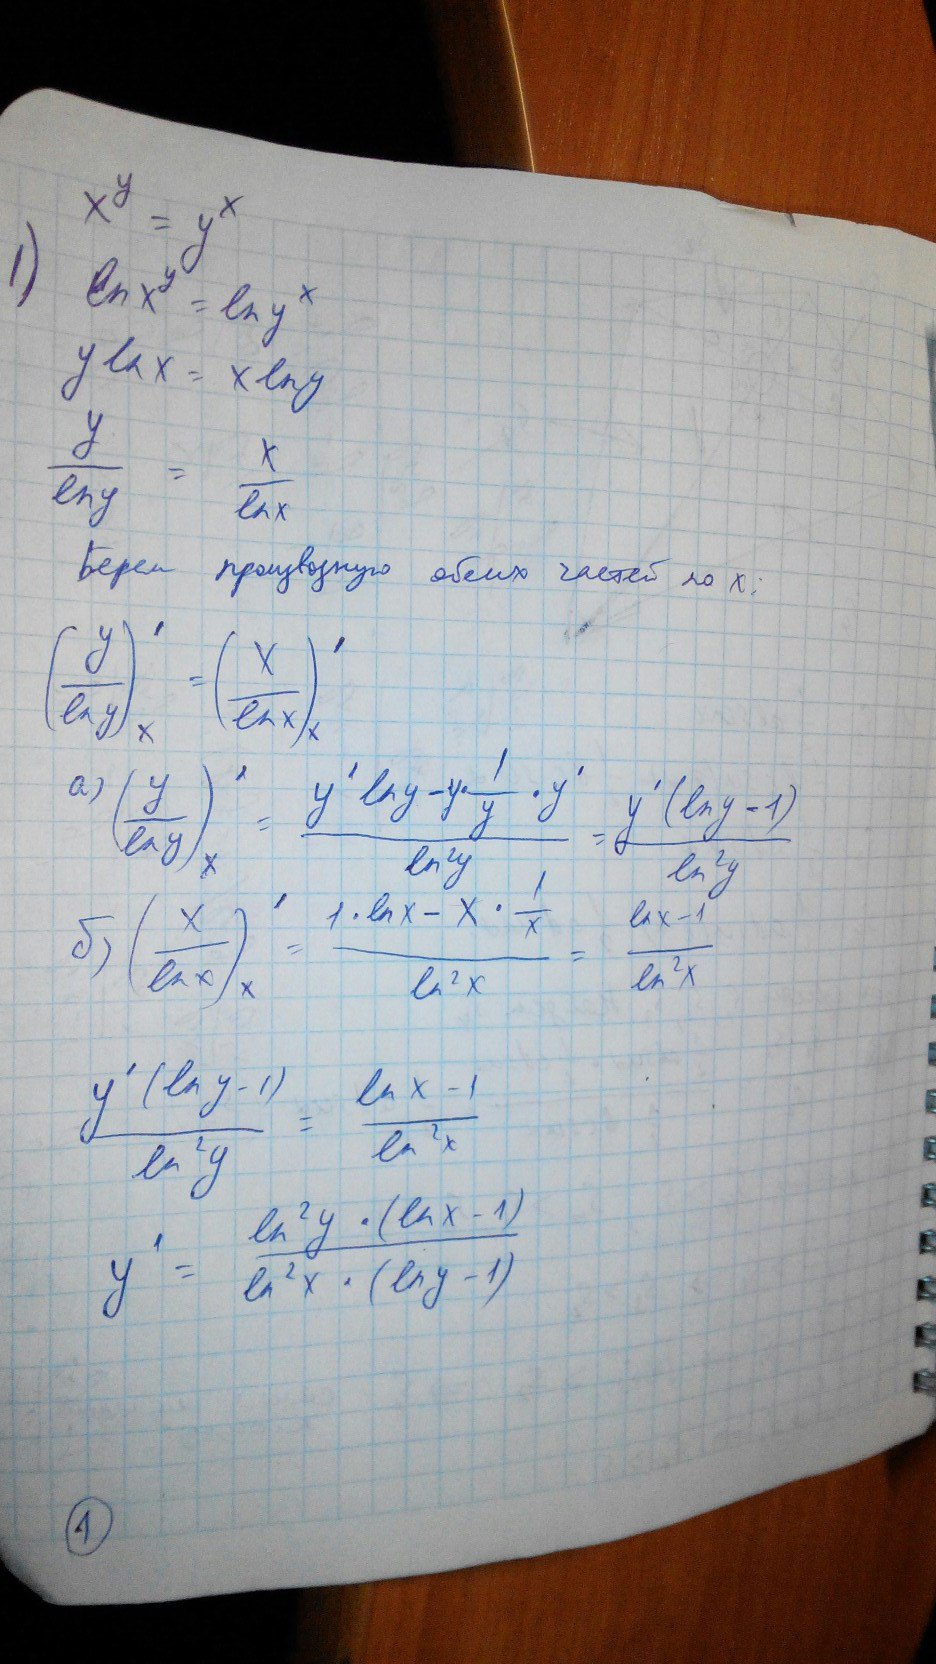 1) x^y = y^x
ln x^y = ln y^x
y ln x = x ln y
y/ln y = x/ln x
Берем производную обеих частей по x:
(y/ln y)'_x = (x/ln x)'_x
а) (y/ln y)'_x = (y' ln y - y · 1/y · y')/ln²y = y'(ln y - 1)/ln²y
б) (x/ln x)'_x = (1 · ln x - x · 1/x)/ln²x = (ln x - 1)/ln²x
y'(ln y - 1)/ln²y = (ln x - 1)/ln²x
y' = (ln²y · (ln x - 1))/(ln²x · (ln y - 1))
1